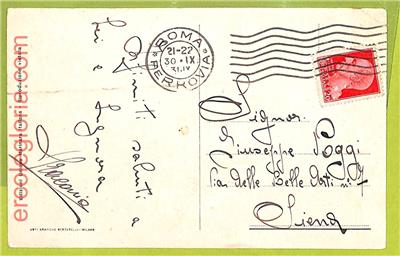 Infiniti saluti a
Lei e Signora
ROMA
FERROVIA
21-22
30·IX
Signor
Giuseppe Poggi
Via delle Belle Arti n°
Siena
ARTI GRAFICHE BERTARELLI - MILANO
ercologloriel.com